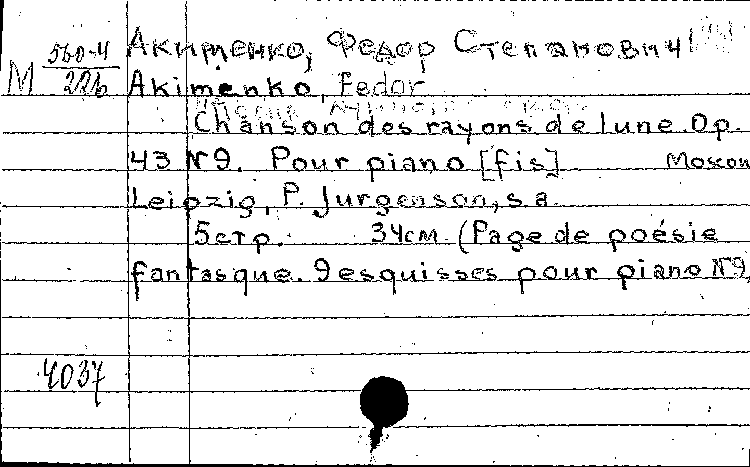 Акименко, Федор Степанович
M 560-4/226
Akimenko, Fedor
Chanson des rayons de lune. Op.
43 N9. Pour piano [fis] Moscou
Leipzig, P. Jurgenson, s.a.
5 стр. 34 см. (Page de poésie
fantasque. 9 esquisses pour piano N9,
4037